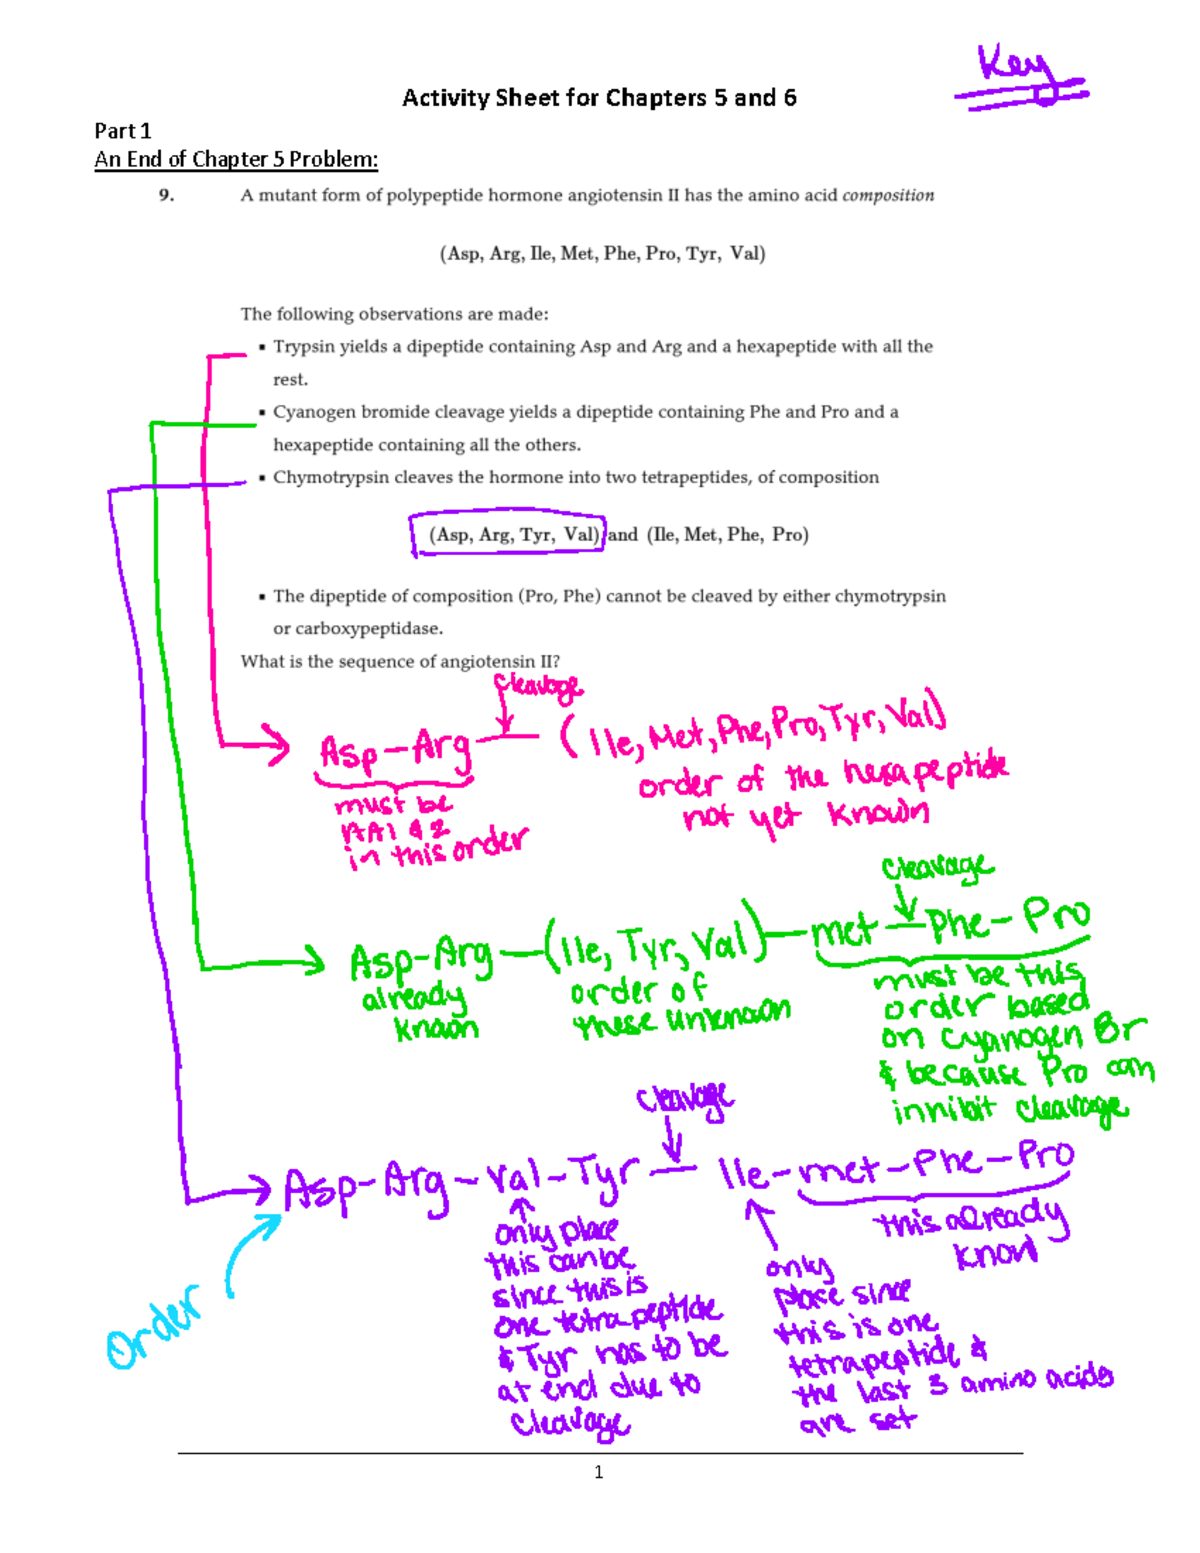 Key
Activity Sheet for Chapters 5 and 6
Part 1
An End of Chapter 5 Problem:
9. A mutant form of polypeptide hormone angiotensin II has the amino acid composition
(Asp, Arg, Ile, Met, Phe, Pro, Tyr, Val)
The following observations are made:
▪ Trypsin yields a dipeptide containing Asp and Arg and a hexapeptide with all the
rest.
▪ Cyanogen bromide cleavage yields a dipeptide containing Phe and Pro and a
hexapeptide containing all the others.
▪ Chymotrypsin cleaves the hormone into two tetrapeptides, of composition
(Asp, Arg, Tyr, Val) and (Ile, Met, Phe, Pro)
▪ The dipeptide of composition (Pro, Phe) cannot be cleaved by either chymotrypsin
or carboxypeptidase.
What is the sequence of angiotensin II?
cleavage
Asp-Arg — (Ile, Met, Phe, Pro, Tyr, Val)
must be
AA1 & 2
in this order
order of the hexapeptide
not yet known
cleavage
Asp-Arg—(Ile, Tyr, Val)—met—Phe-Pro
already
known
order of
these unknown
must be this
order based
on cyanogen Br
& because Pro can
innibit cleavage
cleavage
Asp-Arg-Val-Tyr — Ile-met-Phe-Pro
only place
this can be
since this is
one tetrapeptide
& Tyr has to be
at end due to
cleavage
only
place since
this is one
tetrapeptide &
the last 3 amino acids
are set
this already
know
Order
1